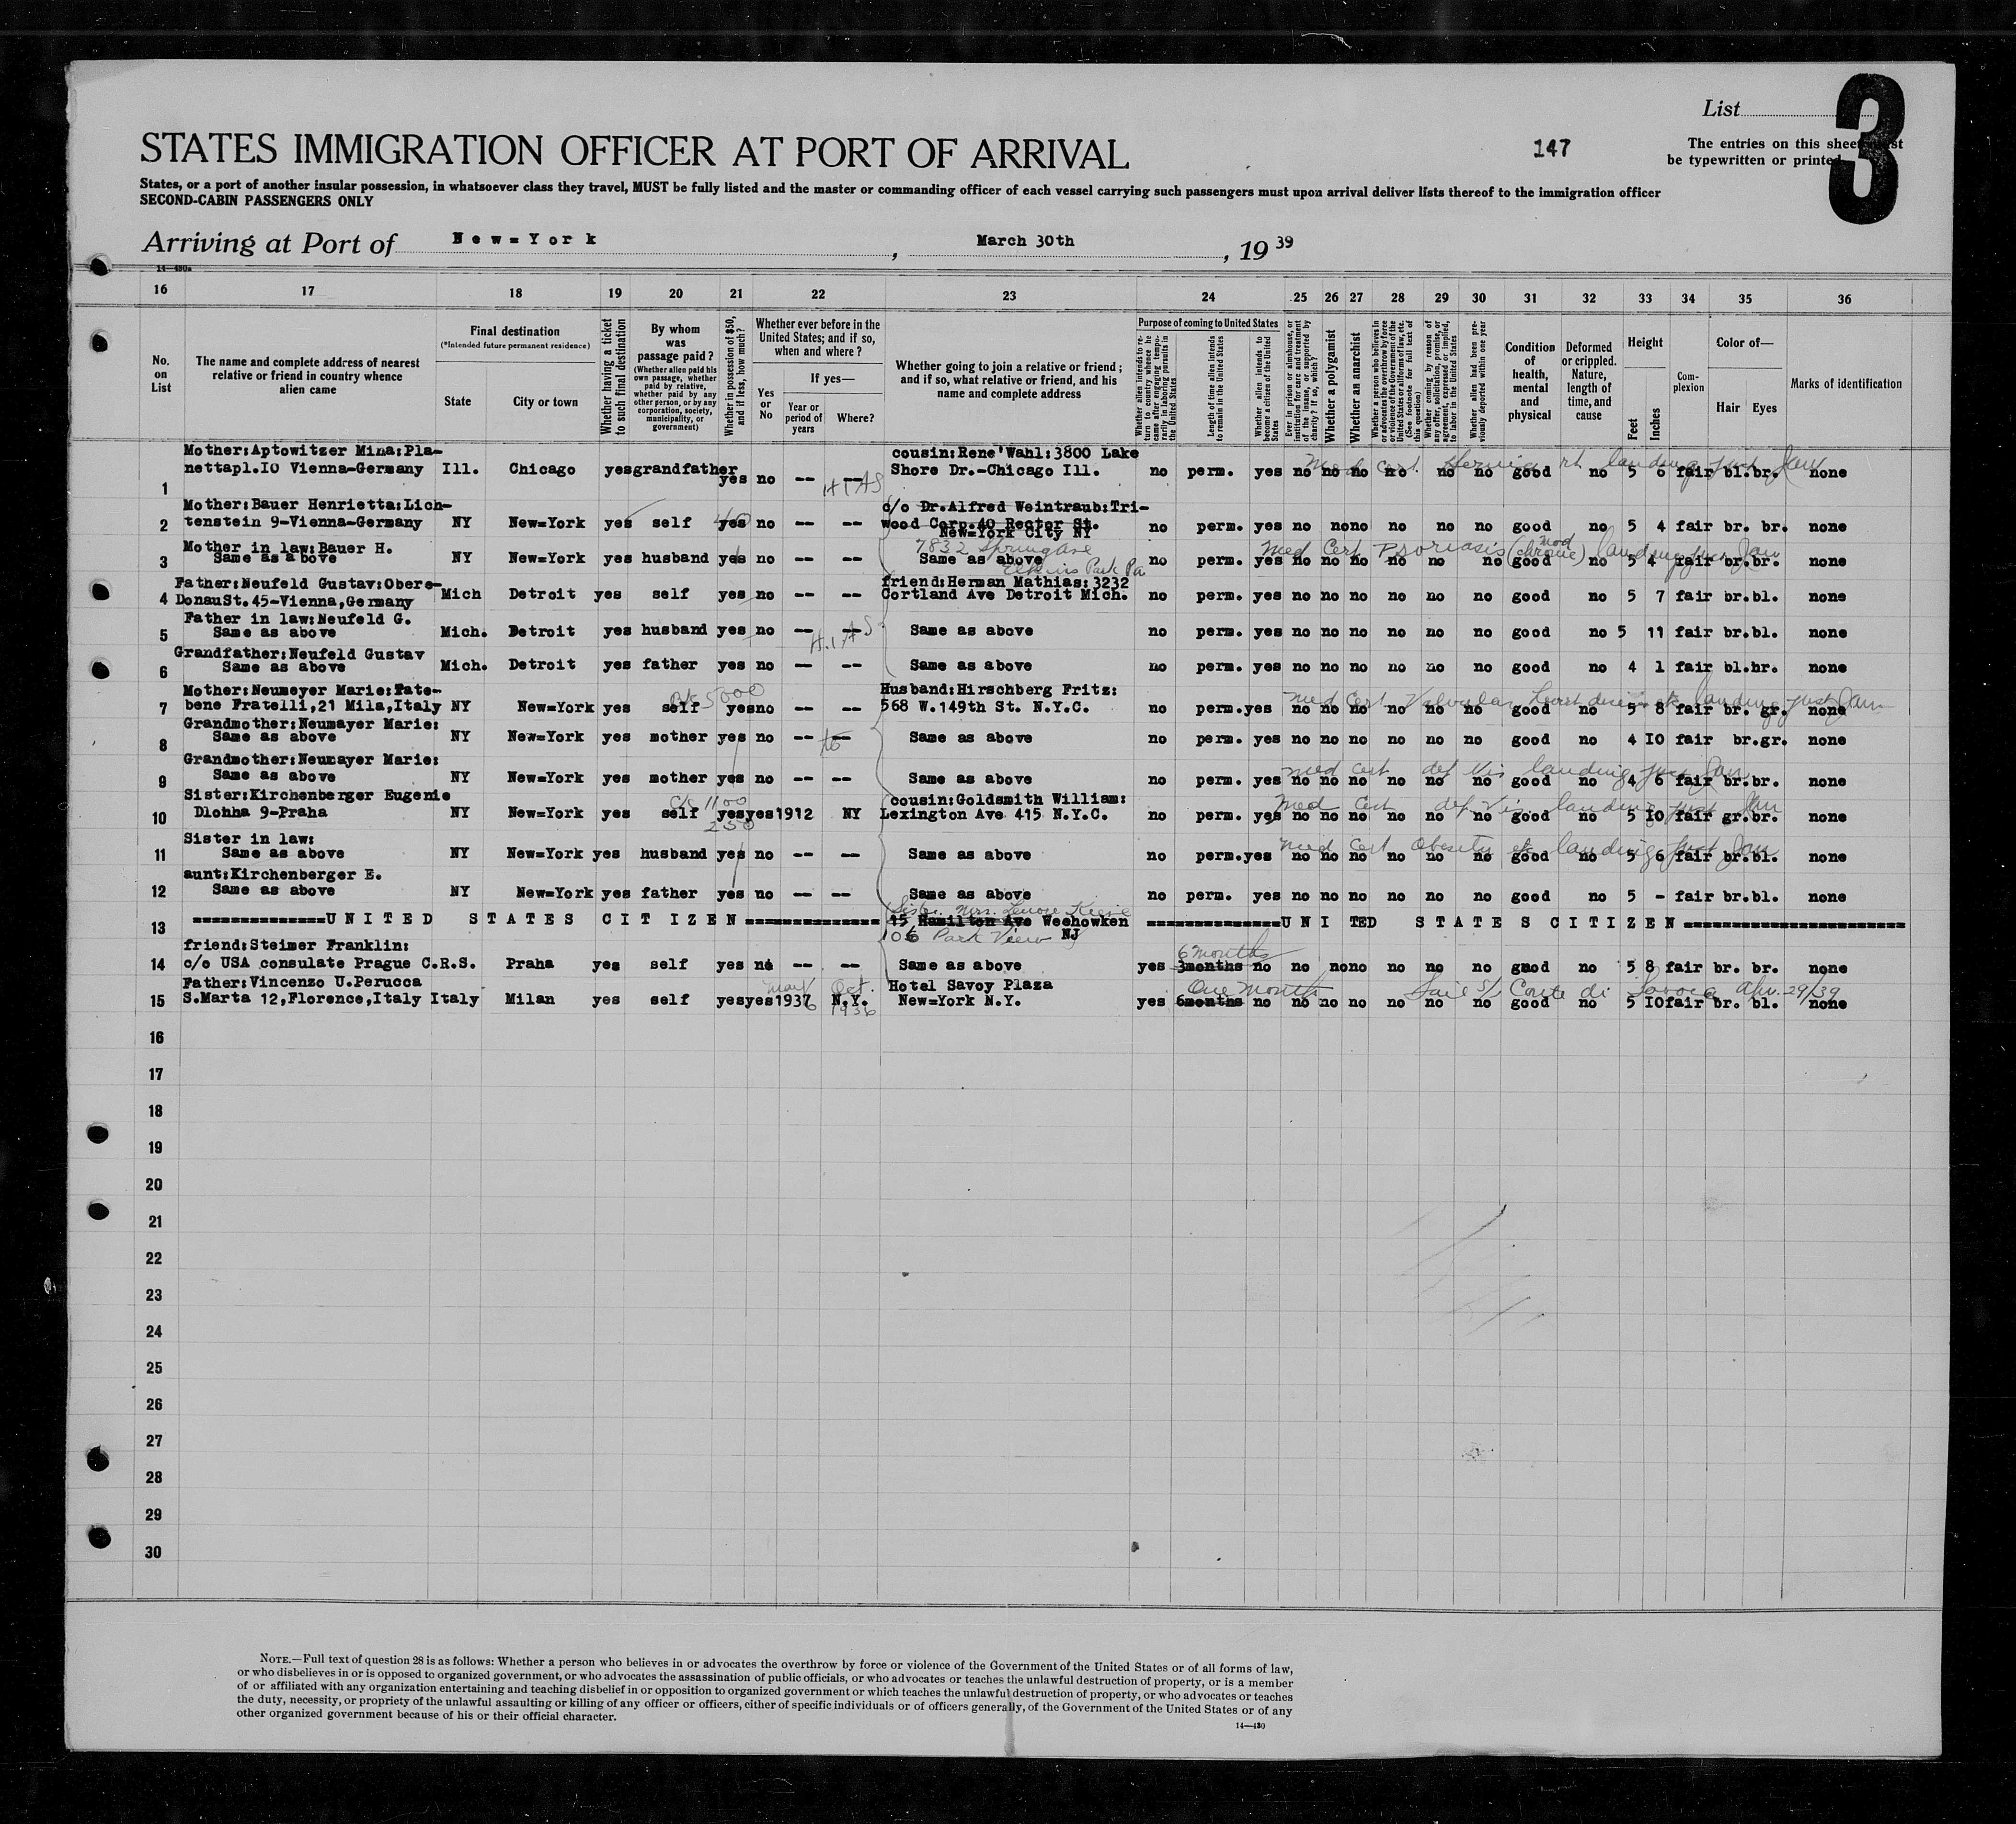 List
3
STATES IMMIGRATION OFFICER AT PORT OF ARRIVAL
147
The entries on this sheet must
be typewritten or printed
States, or a port of another insular possession, in whatsoever class they travel, MUST be fully listed and the master or commanding officer of each vessel carrying such passengers must upon arrival deliver lists thereof to the immigration officer
SECOND-CABIN PASSENGERS ONLY
Arriving at Port of New=York , March 30th , 19 39
14—430a
16 17 18 19 20 21 22 23 24 25 26 27 28 29 30 31 32 33 34 35 36
No. on List
The name and complete address of nearest relative or friend in country whence alien came
Final destination
(*Intended future permanent residence)
State
City or town
Whether having a ticket to such final destination
By whom was passage paid?
(Whether alien paid his own passage, whether paid by relative, whether paid by any other person, or by any corporation, society, municipality, or government)
Whether in possession of $50, and if less, how much?
Whether ever before in the United States; and if so, when and where?
Yes or No
If yes—
Year or period of years
Where?
Whether going to join a relative or friend; and if so, what relative or friend, and his name and complete address
Purpose of coming to United States
Whether alien intends to return to country whence he came after engaging temporarily in laboring pursuits in the United States
Length of time alien intends to remain in the United States
Whether alien intends to become a citizen of the United States
Ever in prison or almshouse, or institution for care and treatment of the insane, or supported by charity? If so, which?
Whether a polygamist
Whether an anarchist
Whether a person who believes in or advocates the overthrow by force or violence of the Government of the United States or all forms of law, etc. (See footnote for full text of this question)
Whether coming by reason of any offer, solicitation, promise, or agreement, expressed or implied, to labor in the United States
Whether alien had been previously deported within one year
Condition of health, mental and physical
Deformed or crippled. Nature, length of time, and cause
Height
Feet
Inches
Complexion
Color of—
Hair Eyes
Marks of identification
Mother:Aptowitzer Mina:Pla- cousin:Rene'Wahl:3800 Lake
1 nettapl.IO Vienna-Germany Ill. Chicago yes grandfather yes no -- -- Shore Dr.-Chicago Ill. no perm. yes no no no no no no good no 5 6 fair bl.br. none
HIAS
Med Cert. Hernia rt. landing just Jaw
Mother:Bauer Henrietta:Lich- c/o Dr.Alfred Weintraub:Tri-
2 tenstein 9-Vienna-Germany NY New=York yes self yes no -- -- wood Corp.40 Rector St. no perm. yes no no no no no no good no 5 4 fair br. br. none
New=York City NY
7832 Spring Ave
Elkins Park Pa
Mother in law:Bauer H.
3 Same as above NY New=York yes husband yes no -- -- Same as above no perm. yes no no no no no no good no 5 4 fair br.br. none
Med Cert Psoriasis (chronic) mod landing just
Father:Neufeld Gustav:Obere- friend:Herman Mathias:3232
4 DonauSt.45-Vienna,Germany Mich Detroit yes self yes no -- -- Cortland Ave Detroit Mich. no perm. yes no no no no no no good no 5 7 fair br.bl. none
Father in law:Neufeld G.
5 Same as above Mich. Detroit yes husband yes no -- -- Same as above no perm. yes no no no no no no good no 5 11 fair br.bl. none
H.I.A.S.
Grandfather:Neufeld Gustav
6 Same as above Mich. Detroit yes father yes no -- -- Same as above no perm. yes no no no no no no good no 4 1 fair bl.hr. none
Mother:Neumeyer Marie:Fate- 5000 Husband:Hirschberg Fritz:
7 bene Fratelli,21 Mila,Italy NY New=York yes self yes no -- -- 568 W.149th St. N.Y.C. no perm.yes no no no no no no good no 5 8 fair br. gr. none
Med Cert Valvular heart disease landing just
Grandmother:Neumayer Marie:
8 Same as above NY New=York yes mother yes no -- -- Same as above no perm. yes no no no no no no good no 4 IO fair br.gr. none
Grandmother:Neumayer Marie:
9 Same as above NY New=York yes mother yes no -- -- Same as above no perm. yes no no no no no no good no 4 6 fair br.br. none
Med Cert def Vis landing just
Sister:Kirchenberger Eugenie 1100 cousin:Goldsmith William:
10 Dlohha 9-Praha NY New=York yes self yes yes 1912 NY Lexington Ave 415 N.Y.C. no perm. yes no no no no no no good no 5 IO fair gr.br. none
250
Med Cert def Vis landing just
Sister in law:
11 Same as above NY New=York yes husband yes no -- -- Same as above no perm.yes no no no no no no good no 5 6 fair br.bl. none
Med Cert Obesity landing just
aunt:Kirchenberger E.
12 Same as above NY New=York yes father yes no -- -- Same as above no perm. yes no no no no no no good no 5 - fair br.bl. none
Sister Mrs. Lenore
13 ==============UNITED STATES CITIZEN============== 15 Hamilton Ave Weehowken ==============UNITED STATES CITIZEN==============
106 Park View NJ
friend:Steimer Franklin: 6 months
14 c/o USA consulate Prague C.R.S. Praha yes self yes no -- -- Same as above yes 3months no no no no no no no good no 5 8 fair br. br. none
Father:Vincenzo U.Perucca May Oct. Hotel Savoy Plaza One Month Sail S/S Conte di Savoia Apr. 29/39
15 S.Marta 12,Florence,Italy Italy Milan yes self yes yes 1937 N.Y. New=York N.Y. yes 6months no no no no no no no good no 5 IO fair br. bl. none
1936
16
17
18
19
20
21
22
23
24
25
26
27
28
29
30
NOTE.—Full text of question 28 is as follows: Whether a person who believes in or advocates the overthrow by force or violence of the Government of the United States or of all forms of law,
or who disbelieves in or is opposed to organized government, or who advocates the assassination of public officials, or who advocates or teaches the unlawful destruction of property, or is a member
of or affiliated with any organization entertaining and teaching disbelief in or opposition to organized government or which teaches the unlawful destruction of property, or who advocates or teaches
the duty, necessity, or propriety of the unlawful assaulting or killing of any officer or officers, either of specific individuals or of officers generally, of the Government of the United States or of any
other organized government because of his or their official character.
14—430